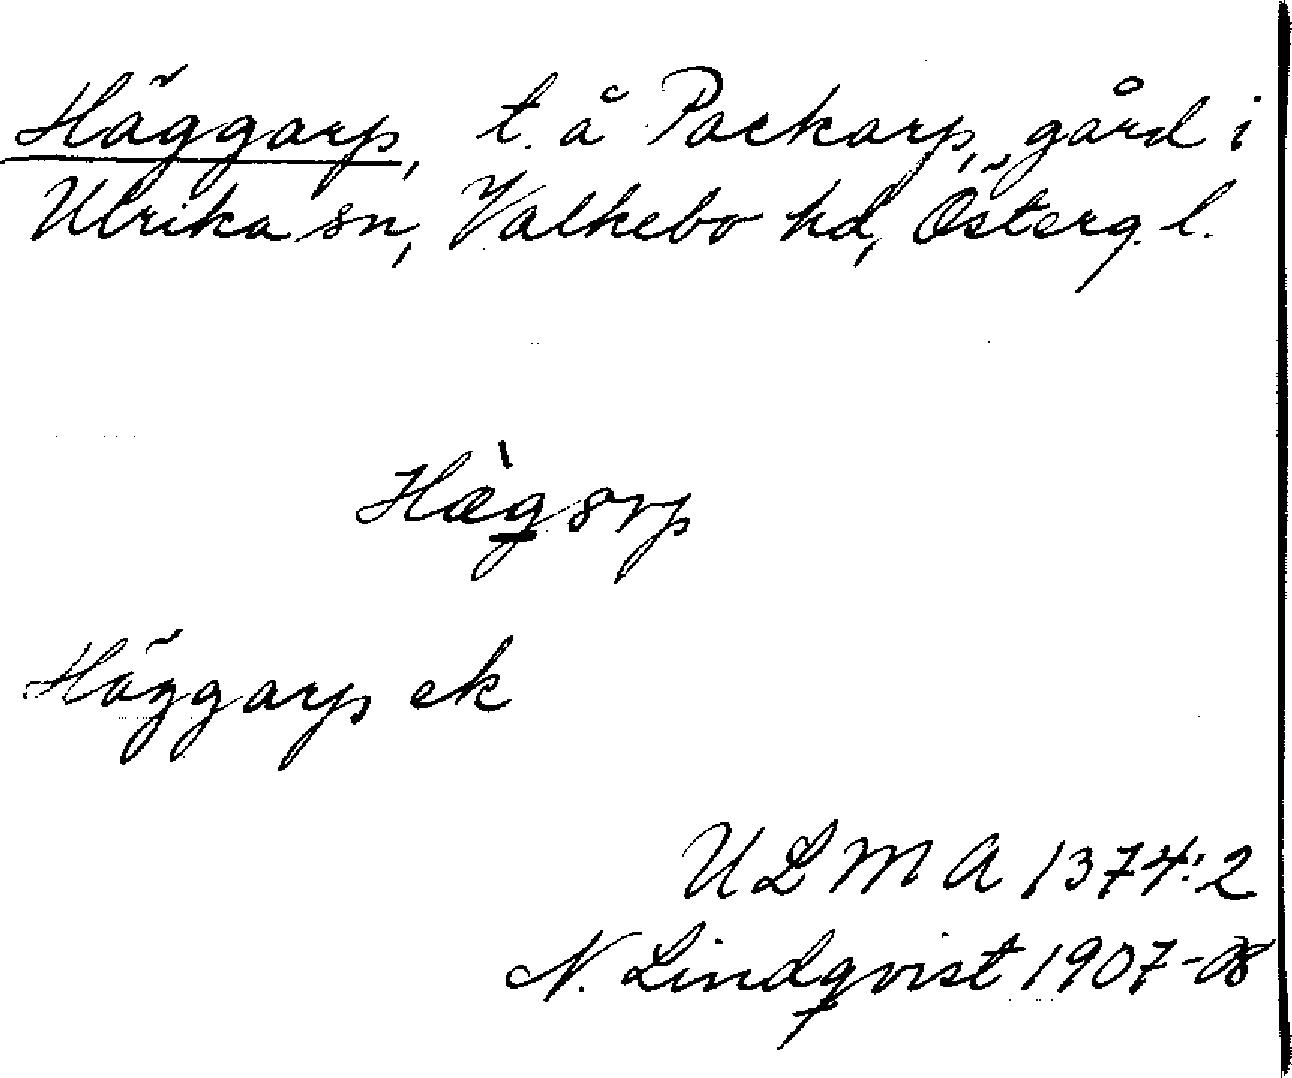 Häggarp, t. å Packarp, gård i
Ulrika sn, Valkebo hd, Österg. l.
Hæ̀g̲arp
Häggarp ek
ULMA 1374:2
N. Lindqvist 1907-08